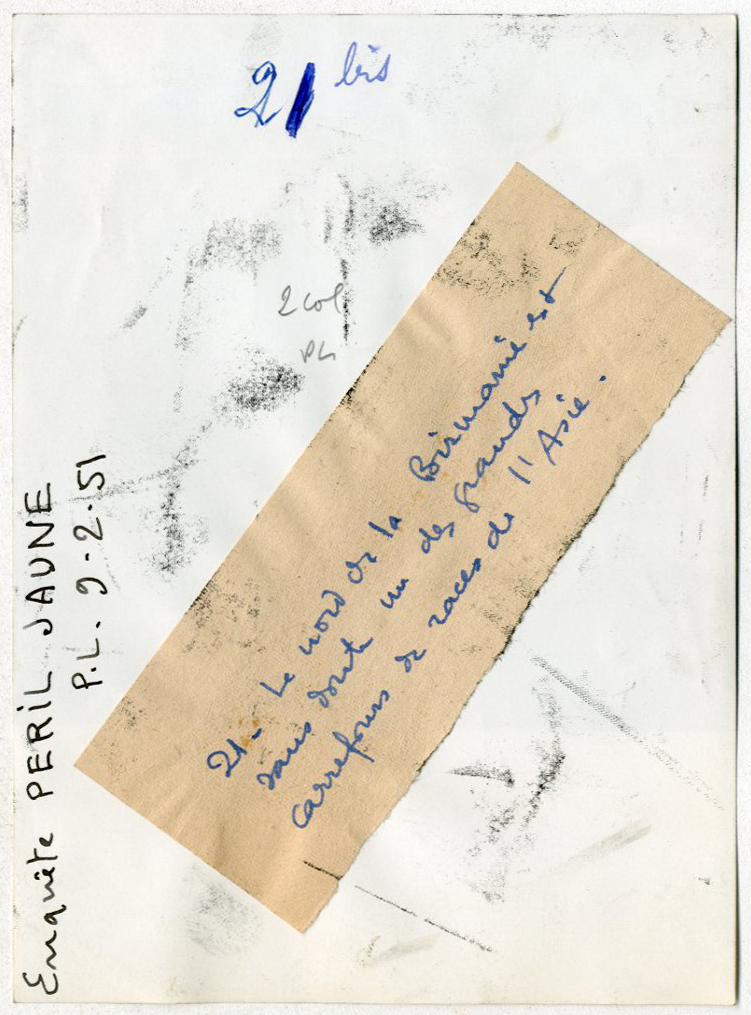 21 bis
2 col
PL
21 - Le nord de la Birmanie est
sans doute un des grands
carrefours de races de l'Asie.
Enquête PERIL JAUNE
P.L. 9-2-51